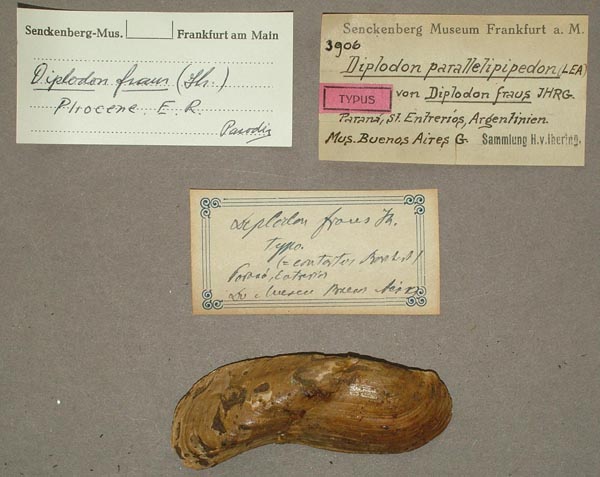 Senckenberg-Mus. Frankfurt am Main
Diplodon fraus (Ih.)
Pliocene. E. R.
Parodiz
Senckenberg Museum Frankfurt a. M.
3906
Diplodon parallelipipedon (LEA)
TYPUS von Diplodon fraus IHRG.
Paraná, St. Entrerios, Argentinien.
Mus. Buenos Aires G Sammlung H. v. Ihering.
Diplodon fraus Ih.
typo.
(= contortus
Paraná, Entrerios
Museu Buenos Aires